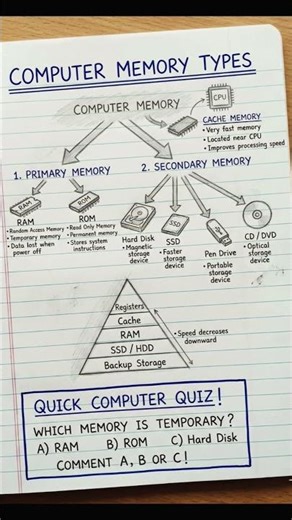 COMPUTER MEMORY TYPES
COMPUTER MEMORY
CPU
CACHE MEMORY
• Very fast memory
• Located near CPU
• Improves processing speed
1. PRIMARY MEMORY
2. SECONDARY MEMORY
RAM
RAM
• Random Access Memory
• Temporary memory
• Data lost when
power off
ROM
ROM
• Read Only Memory
• Permanent memory
• Stores system
instructions
Hard Disk
• Magnetic
storage
device
SSD
SSD
• Faster
storage
device
Pen Drive
• Portable
storage
device
CD / DVD
• Optical
storage
device
Registers
Cache
RAM
SSD / HDD
Backup Storage
• Speed decreases
downward
QUICK COMPUTER QUIZ!
WHICH MEMORY IS TEMPORARY?
A) RAM B) ROM C) Hard Disk
COMMENT A, B OR C!